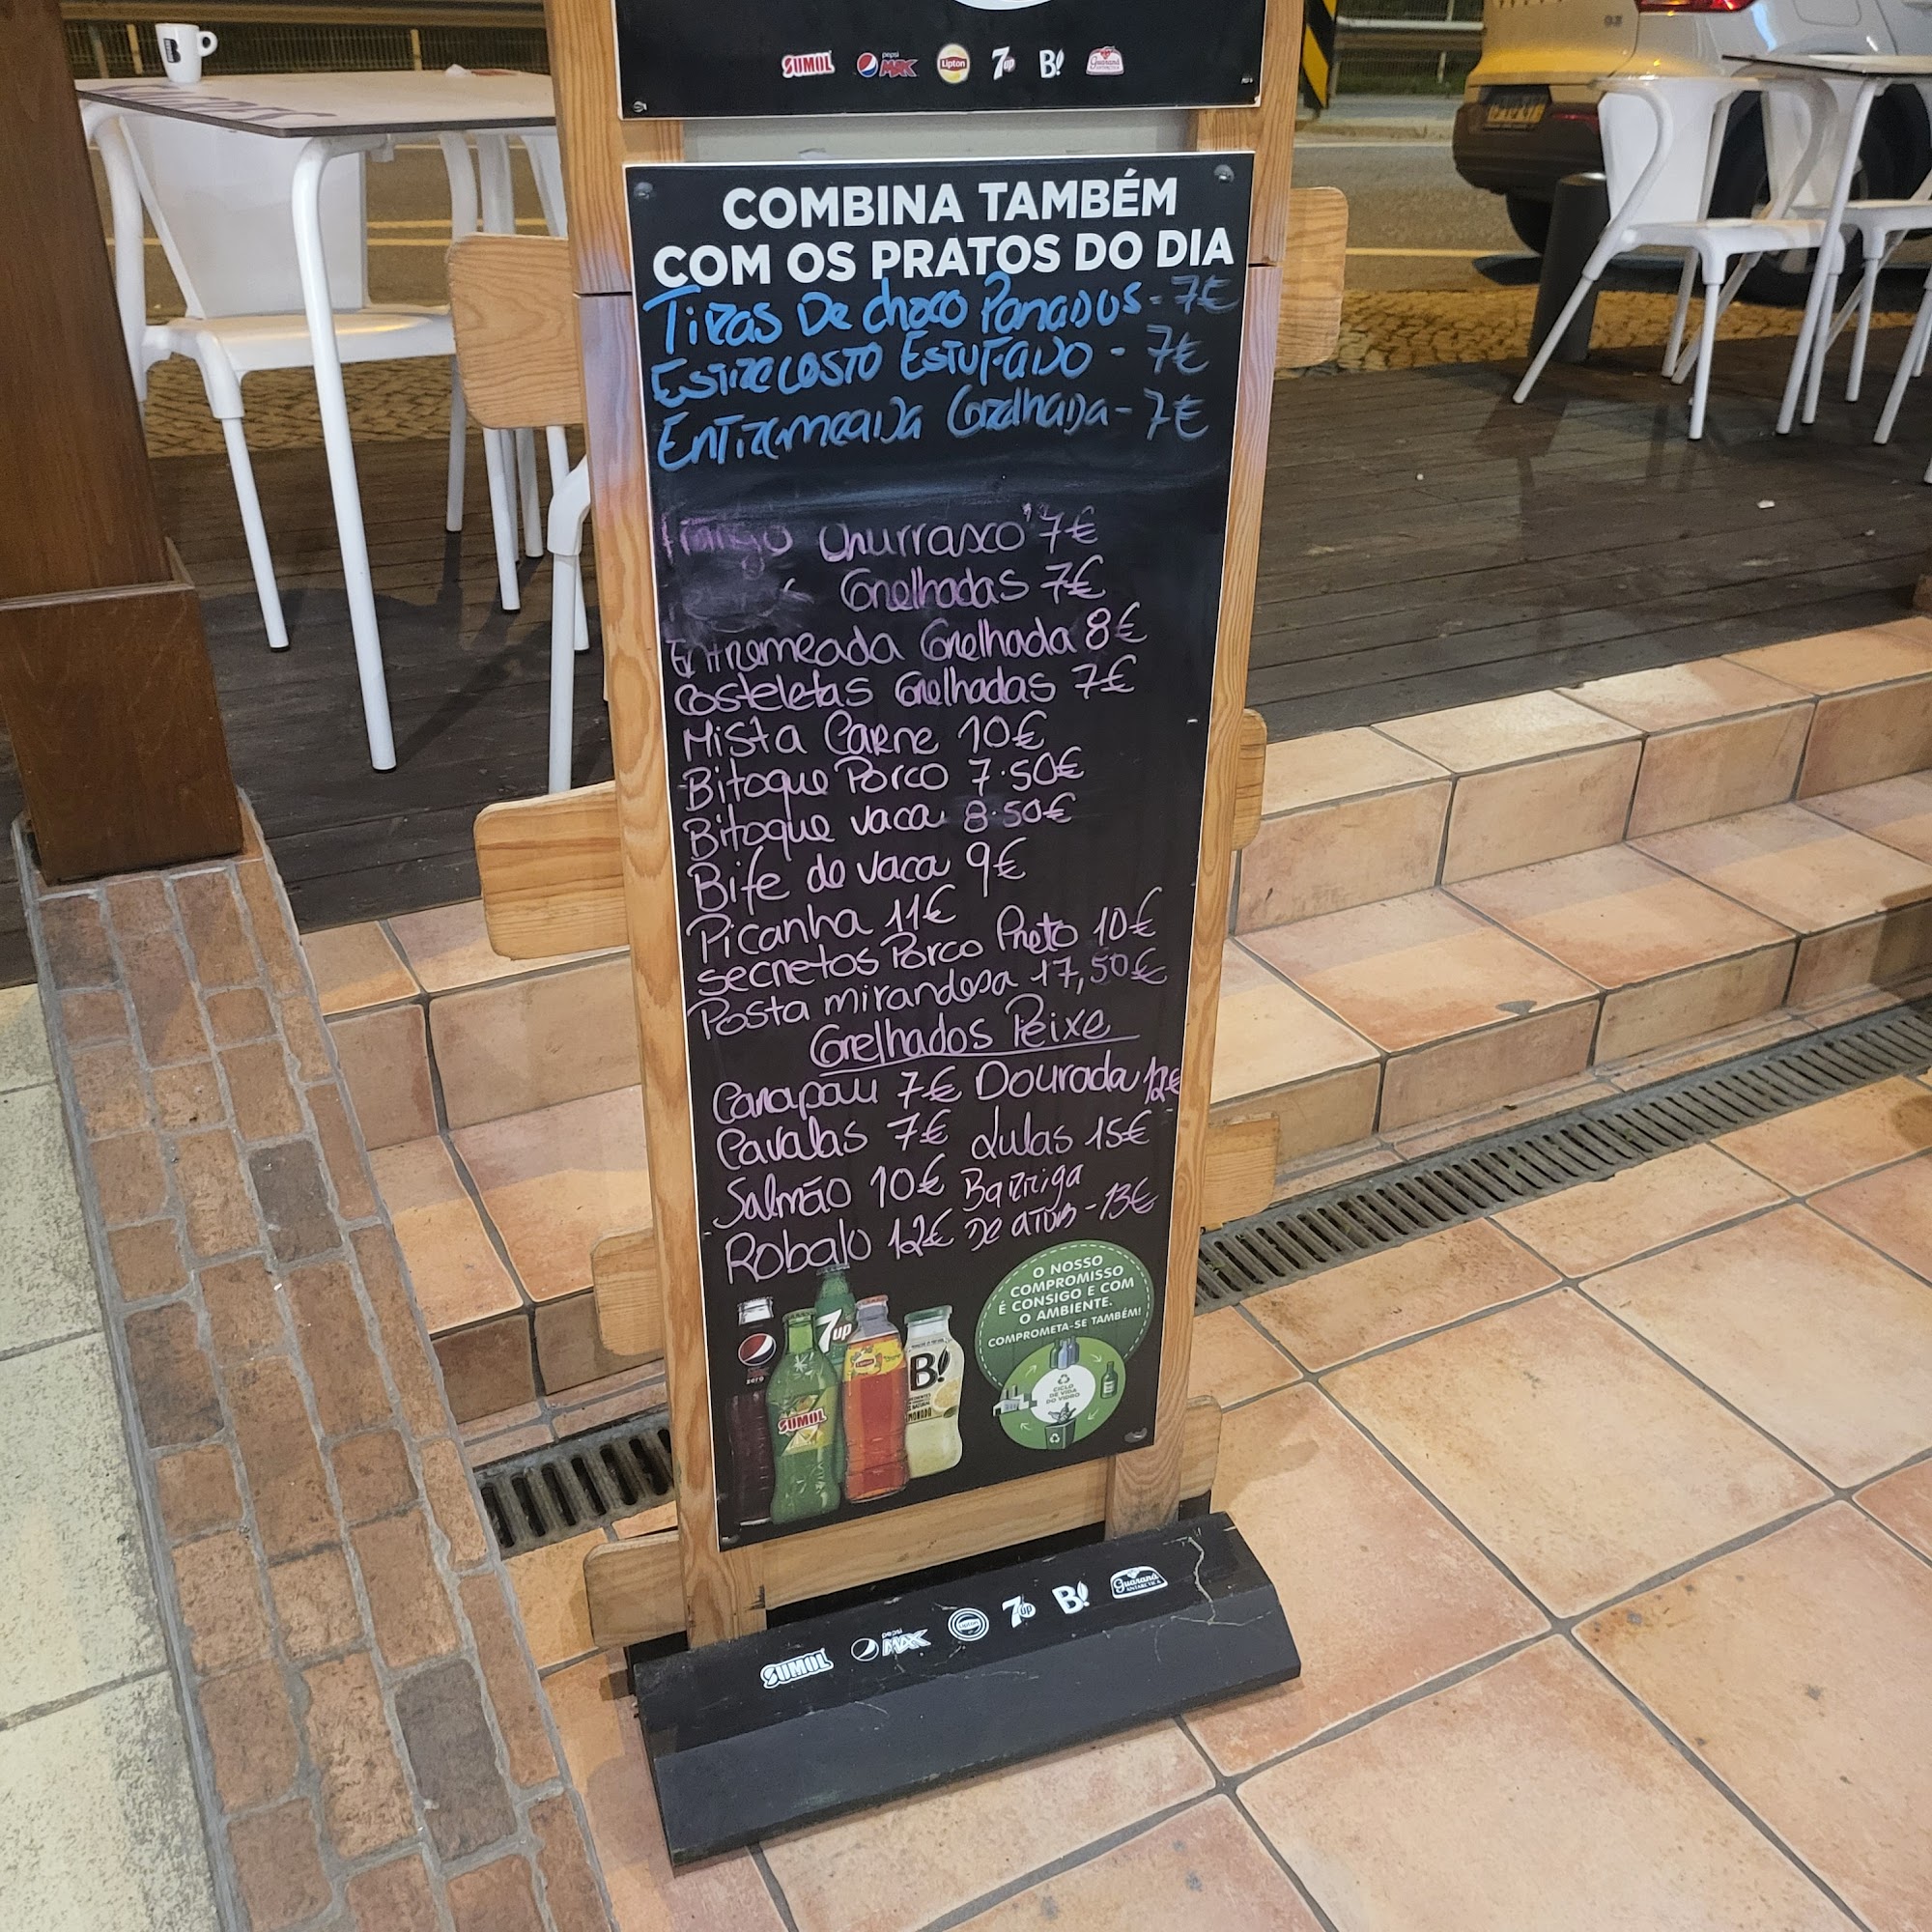 SUMOL pepsi MAX Lipton 7up B! Guaraná
COMBINA TAMBÉM
COM OS PRATOS DO DIA
Tiras De choco Panados - 7€
Estrecosto Estufado - 7€
Entremeada Grelhada - 7€
Frango Churrasco 7€
Grelhadas 7€
Entremeada Grelhada 8€
Costeletas Grelhadas 7€
Mista Carne 10€
Bitoque Porco 7.50€
Bitoque vaca 8.50€
Bife de vaca 9€
Picanha 11€
secretos Porco Preto 10€
Posta mirandesa 17,50€
Grelhados Peixe
Carapau 7€ Dourada 12€
Cavalas 7€ Lulas 15€
Salmão 10€ Barriga
Robalo 12€ De atum - 13€
O NOSSO
COMPROMISSO
É CONSIGO E COM
O AMBIENTE.
COMPROMETA-SE TAMBÉM!
CICLO
DE VIDA
DO VIDRO
7up
SUMOL
Lipton
B!
SUMOL pepsi MAX Lipton 7up B! Guaraná ANTARCTICA